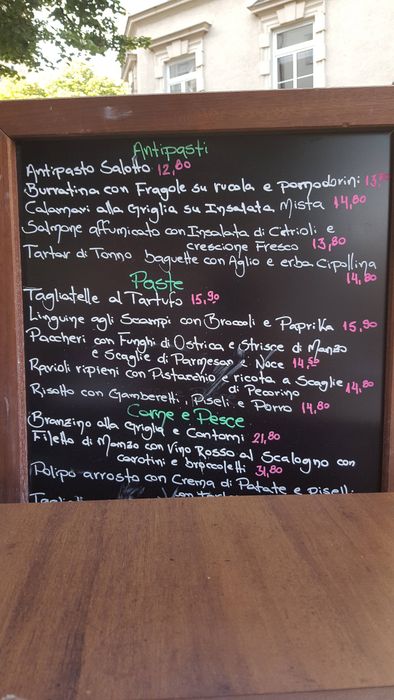 Antipasti
Antipasto Salotto 12,80
Burratina con Fragole su rucola e pomodorini 13,
Calamari alla Griglia su Insalata Mista 14,80
Salmone affumicato con Insalata di Citrioli e
crescione Fresco 13,80
Tartar di Tonno baguette con Aglio e erba Cipollina
14,80
Paste
Tagliatelle al Tartufo 15,90
Linguine agli Scampi con Broccoli e Paprika 15,90
Paccheri con Funghi di Ostrica e Strisce di Manzo
e Scaglie di Parmesan e Noce 14,50
Ravioli ripieni con Pistacchio e ricota a Scaglie
di Pecorino 14,80
Risotto con Gamberetti, Piseli e Porro 14,80
Carne e Pesce
Branzino alla Griglia e Contorni 21,80
Filetto di Manzo con Vino Rosso al Scalogno con
carotini e broccoletti 31,80
Polipo arrosto con Crema di Patate e piselli